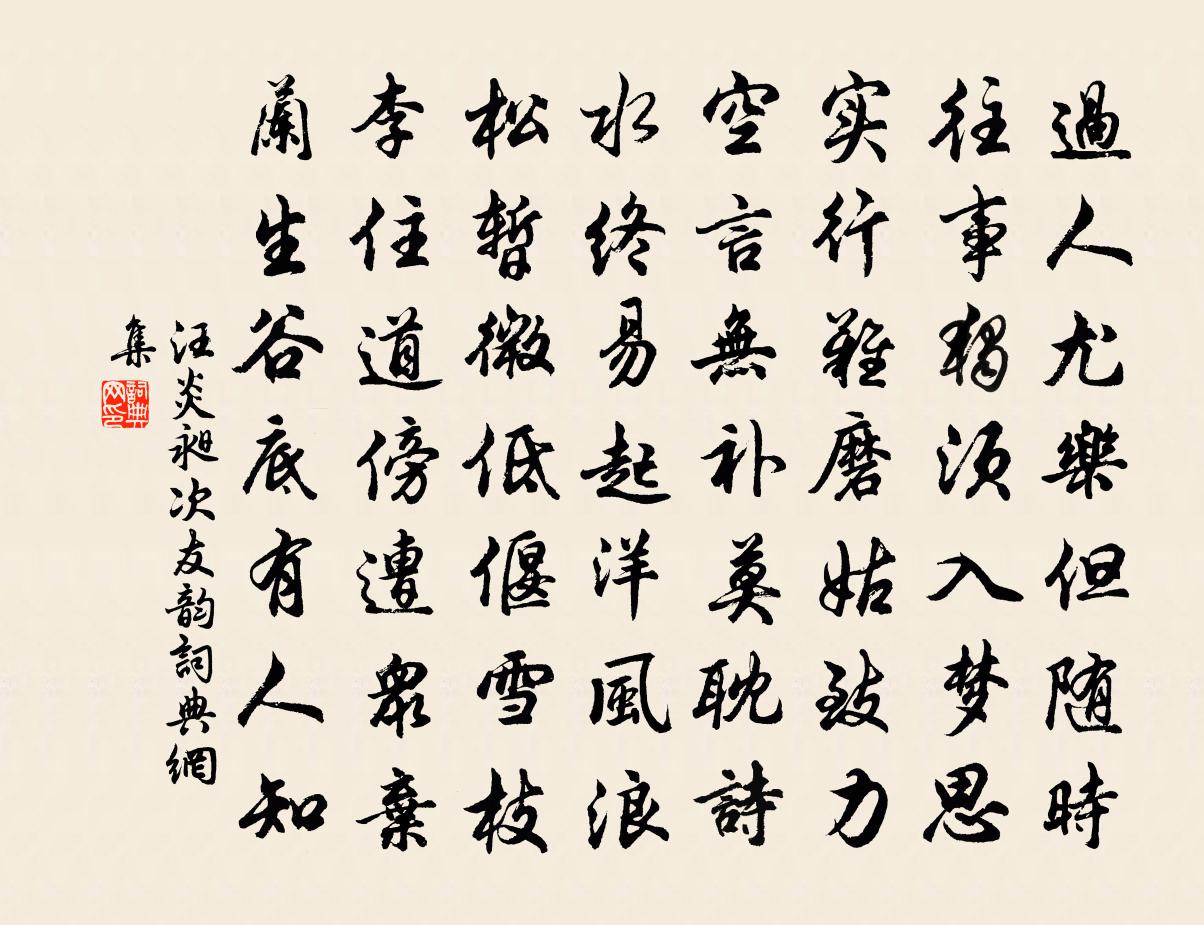 過人尤樂但随時
往事獨須入梦思
实行難磨姑致力
空言無补莫耽詩
水终易起洋風浪
松暫微低偃雪枝
李住道傍遭眾棄
蘭生谷底有人知
汪炎昶次友韵詞典網
集
詞典网印